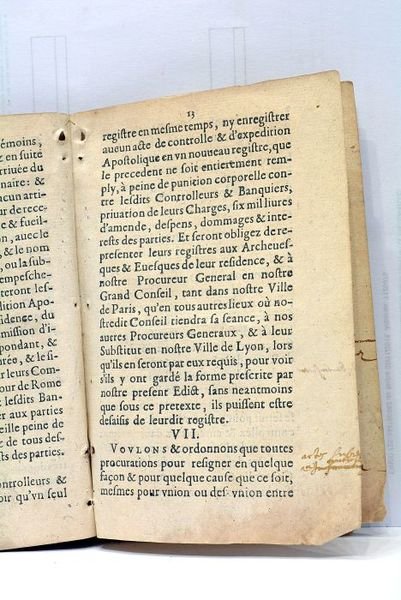 émoins,
& en suite
arriuée du
naire: &
ucun arti-
ur de rece-
e & fueil-
on, auec le
& le nom
, ou la sub-
empesche-
teront les-
dition Apo-
sidence, du
mission d'i-
pondant, &
& le si-
leurs Com-
our de Rome
lesdits Ban-
er aux parties
eille peine de
& de tous des-
ts des parties.
ontrolleurs &
oir qu'vn seul
13
registre en mesme temps, ny enregistrer
aucun acte de controlle & d'expedition
Apostolique en vn nouueau registre, que
le precedent ne soit entierement rem-
ply, à peine de punition corporelle con-
tre lesdits Controlleurs & Banquiers,
priuation de leurs Charges, six mil liures
d'amende, despens, dommages & inte-
rests des parties. Et seront obligez de re-
presenter leurs registres aux Archeues-
ques & Euesques de leur residence, & à
nostre Procureur General en nostre
Grand Conseil, tant dans nostre Ville
de Paris, qu'en tous autres lieux où no-
stredit Conseil tiendra sa seance, à nos
autres Procureurs Generaux, & à leur
Substitut en nostre Ville de Lyon, lors
qu'ils en seront par eux requis, pour voir
s'ils y ont gardé la forme prescrite par
nostre present Edict, sans neantmoins
que sous ce pretexte, ils puissent estre
desaisis de leurdit registre.
VII.
VOVLONS & ordonnons que toutes
procurations pour resigner en quelque
façon & pour quelque cause que ce soit,
mesmes pour vnion ou des-vnion entre